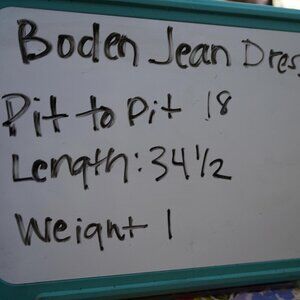 Boden Jean Dres
Pit to Pit 18
Length: 34 1/2
Weight 1